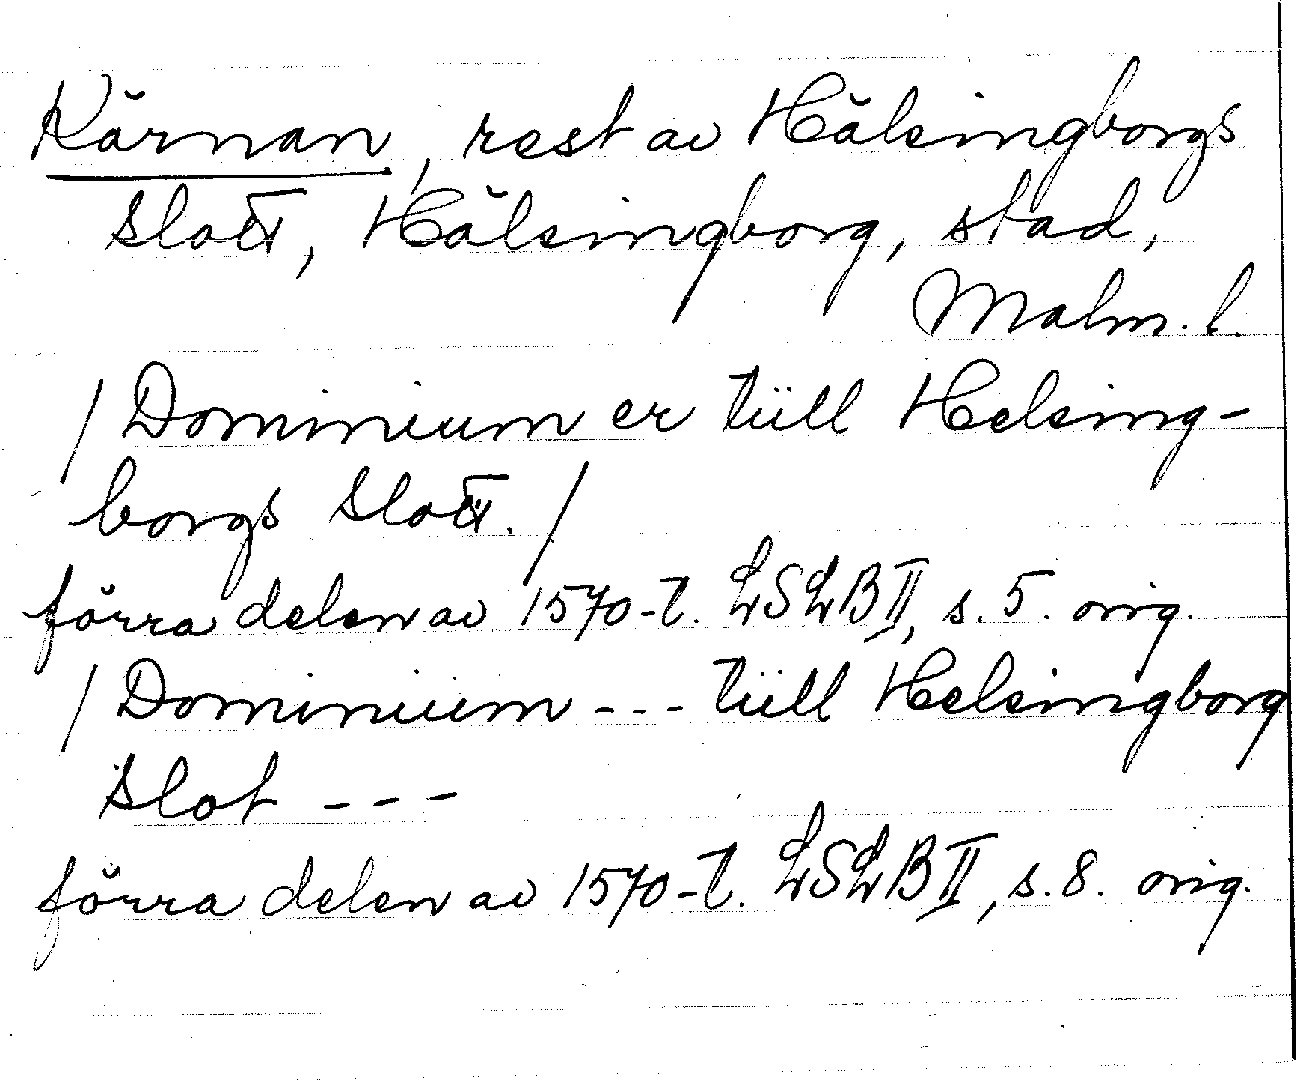 Kärnan, rest av Hälsingborgs
slott, Hälsingborg, stad,
Malm. l.
/ Dominium er tiill Helsing-
borgs Slott. /
förra delen av 1570-t. LSLB II, s. 5. orig.
/ Dominium --- tiill Helsingborg
Slot ---
förra delen av 1570-t. LSLB II, s. 8. orig.